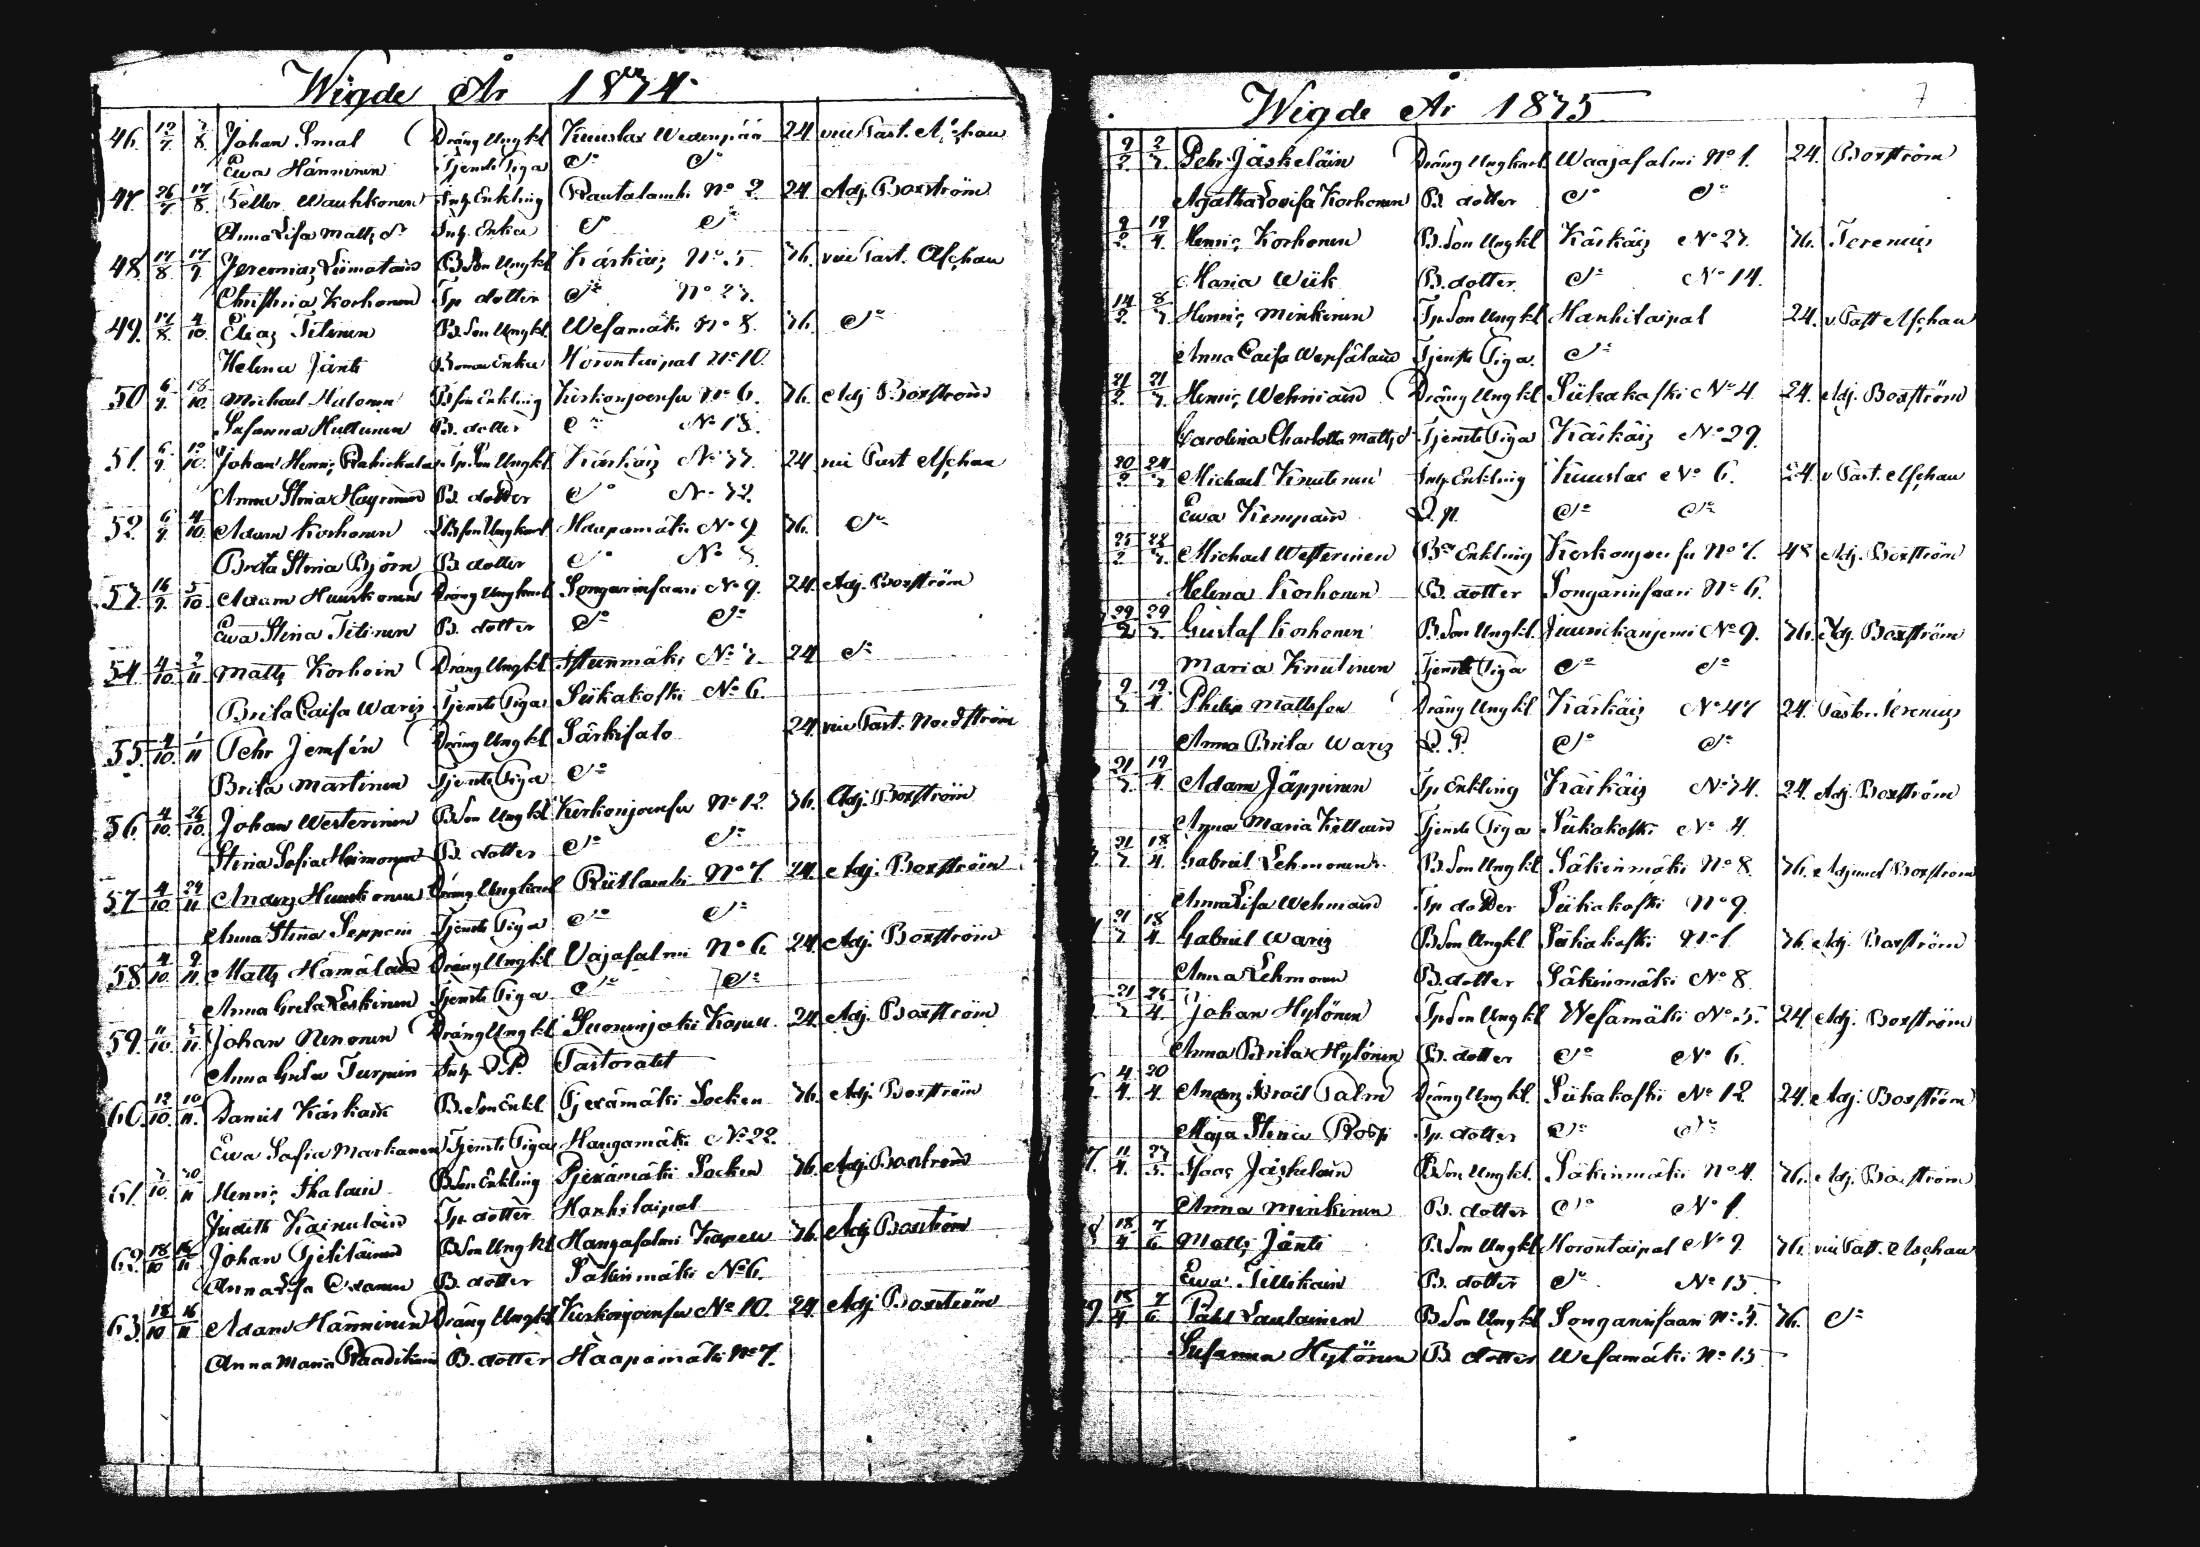 Wigde År 1834.
46. 19/7. 3/8. Johan Smal Dräng Ungkl Kuuslax Wedenpää 24. vice Past. Aschan
Ewa Hänninen Tjenste Piga Do Do
47. 26/7. 17/8. Petter Wauhkonen Inh. Enkling Rautalambi No 2. 24. Adj. Boxström
Anna Lisa Matts dr Inh. Enka Do Do
48. 17/8 Jeremias Liimatain B. Son Ungkl Kärkäis No 5. 36. vice Past. Aschan
Christina Korhonen Tp dotter Do No 23.
49. 17/8. 4/10. Elias Titinen B. Son Ungkl. Wesamäki No 8. 36. Do
Helena Jänti Bonau Enka Horontaipal No 10.
50 6/9. 18/10. Michael Halonen B. son Enkling Kirkonjoensu No 6. 36. Adj Boxström
Susanna Hultunen B. dotter Do No 13.
51. 6/9. Johan Henric Tp. Son Ungkl. Kärkäis No 33. 24 vice Past Aschan
Anna Stina B. dotter Do No 32.
52. 6/9. 4/10. Adam Korhonen B. son Ungkarl Haapamäki No 9 36. Do
Brita Stina Björn B. dotter Do No 8.
53. 16/9. 5/10. Adam Huuskonen Dräng Ungkarl Songarinsaari No 9. 24. Adj. Boxström
Ewa Stina Titinen B. dotter Do Do
54. 4/10. 2/11. Matts Korhoin Dräng Ungkl Istunmäki No 3. 24. Do
Brita Caisa Waris Tjenste Piga Siikakoski No 6.
55. 4/10. 1/11 Pehr Jemsén Dräng Ungkl Särkisalo 24. vice Past. Nordström
Brita Martinen Tjenste Piga Do
56. 4/10. 26/10. Johan Westerinen B. Son Ungkl Kirkonjoensu No 12. 36. Adj. Boxström
Stina Sofia Heimonen B. dotter Do Do
57. 4/10. 29/11 Anders Huuskonen Dräng Ungkarl Riitlambi No 7. 24. Adj. Boxström
Anna Stina Seppein Tjenste Piga Do Do
58. 4/10. 9/11. Matts Hämäläin Dräng Ungkl Vajasalmi No 6. 24. Adj. Boxström
Anna Greta Leskinen Tjenste Piga Do Do
59. Johan Nenonen Dräng Ungkl Suonenjoki Kapell 24. Adj. Boxström
Anna Greta Turpein Inh. Q. P. Pastoratet
60. 12/10. 10/11. Daniel Kärkäin B. Son Enkl. Pjexämäki Socken 36. Adj. Boxström
Ewa Sofia Markanen Tjenste Piga Hangamäki No 22.
61. Henric Ihalain B. Son Enkling Pjexämäki Socken 36. Adj. Boxström
Judith Kainulain Tp. dotter Hankitaipal
62. 18/10 16/11 Johan Pjelitäinen B. Son Ungkl Hangasalmi Kapell 36. Adj Boxström
Anna Lisa Oxanen B. dotter Säkinmäki No 6.
63. 18/10 16/11 Adam Hänninen Dräng Ungkl Kirkonjoensu No 10. 24. Adj Boxström
Anna Maria Raadikain B. dotter Haapamäki No 7.
7
Wigde År 1835.
2/2. 2/3. Pehr Jäskeläin Dräng Ungkarl Waajasalmi No 1. 24. Boxström
Agatha Lovisa Korhonen B. dotter Do Do
2/2. 19/4. Henric Korhonen B. Son Ungkl Kärkäis No 23. 36. Terenius
Maria Wiik B. dotter Do No 14.
14/2. 8/3. Henric Minkinen Tp. Son Ungkl Hankitaipal 24. v. Past Aschan
Anna Caisa Wepsäläin Tjenste Piga Do
21/2. 21/3. Henric Wehniäin Dräng Ungkl Siikakoski No 4. 24. Adj. Boxström
Carolina Charlotta Matts dr Tjenste Piga Kärkäis No 29.
20/2. 24/3. Michael Knutinen Inh. Enkling Kuuslax No 6. 24. v Past. Aschan
Ewa Kempain Q. p. Do Do
Michael Westerinen Bde Enkling Kirkonjoensu No 7. 48 Adj. Boxström
Helena Korhonen B. dotter Songarinsaari No 6.
29/2 29/3. Gustaf Korhonen B. Son Ungkl. No 9. 36. Adj. Boxström
Maria Knutinen Tjenste Piga Do Do
9/3 19/4 Philip Mattsson Dräng Ungkl Kärkäis No 47 24. Pastor Terenius
Anna Brita Waris Q. P. Do Do
21/3. 19/4. Adam Jäppinen Tp Enkling Kärkäis No 34. 24. Adj. Boxström
Anna Maria Tjenste Piga Siikakoski No 4.
21/3 18/4. Gabriel Lehmonen B. Son Ungkl Säkinmäki No 8. 36. Adjunct Boxström
Anna Lisa Wehniäin Tp dotter Siikakoski No 9.
21/3 18/4. Gabriel Waris B. Son Ungkl. Siikakoski No 1. 36. Adj. Boxström
Anna Lehmonen B. dotter Säkinmäki No 8.
Johan Hytönen Tp Son Ungkl Wesamäki No 5. 24. Adj. Boxström
Anna Brita Hytönen B. dotter Do No 6.
4/4. 20/4. Anders Israël Palm Dräng Ungkl. Siikakoski No 12. 24. Adj. Boxström
Maja Stina Tp. dotter Do Do
11/4. Isaac Jäskeläin B. Son Ungkl. Säkinmäki No 4. 36. Adj. Boxström
Anna Minkinen B. dotter Do No 1.
18/4 7/6. Matts Jänti B. Son Ungkl Horontaipal No 9. 36. vice Past. Aschan
Ewa Tillikain B. dotter Do No 15
18/4 7/6. Påhl Laulainen B. Son Ungkl Songarinsaari No 5. 36. Do
Susanna Hytönen B. dotter Wesamäki No 15